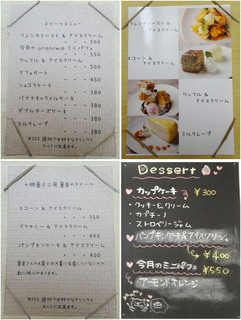 スイーツメニュー
フレンチトースト & アイスクリーム
500
今月の uraniwa ミニパフェ
550
ワッフル & アイスクリーム
500
アフォガード
450
ショコラケーキ
380
バナナキャラメルケーキ
380
ダブルチーズケーキ
380
ミルクレープ
380
フレンチトースト &
アイスクリーム
スコーン &
アイスクリーム
ワッフル &
アイスクリーム
ミルクレープ
スコーン & アイスクリーム
350
ブラウニー & アイスクリーム
400
パンプキンケーキ & アイスクリーム
400
Dessert
カップケーキ ¥300
・クッキー&クリーム
・カプチーノ
・ストロベリージャム
パンプキンケーキ&アイスクリーム
¥400
今月のミニパフェ
¥550
アーモンドオレンジ